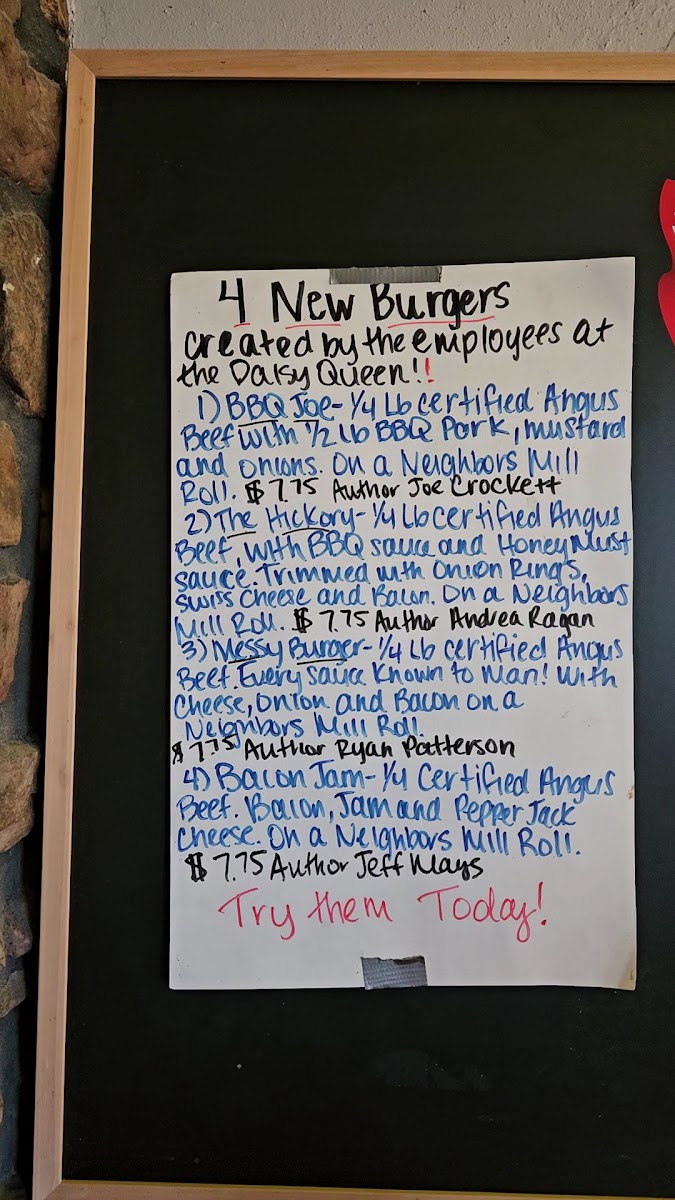 4 New Burgers
created by the employees at
the Daisy Queen!!
1) BBQ Joe- 1/4 Lb certified Angus
Beef with 1/2 lb BBQ Pork, mustard
and onions. On a Neighbors Mill
Roll. $7.75 Author Joe Crockett
2) The Hickory- 1/4 Lb certified Angus
Beef, with BBQ sauce and Honey Must
sauce. Trimmed with Onion Rings,
Swiss Cheese and Bacon. On a Neighbors
Mill Roll. $7.75 Author Andrea Ragan
3) Messy Burger- 1/4 Lb certified Angus
Beef. Every sauce Known to Man! With
Cheese, Onion and Bacon on a
Neighbors Mill Roll.
$7.75 Author Ryan Patterson
4) Bacon Jam- 1/4 Certified Angus
Beef. Bacon, Jam and Pepper Jack
Cheese. On a Neighbors Mill Roll.
$7.75 Author Jeff Mays
Try them Today!